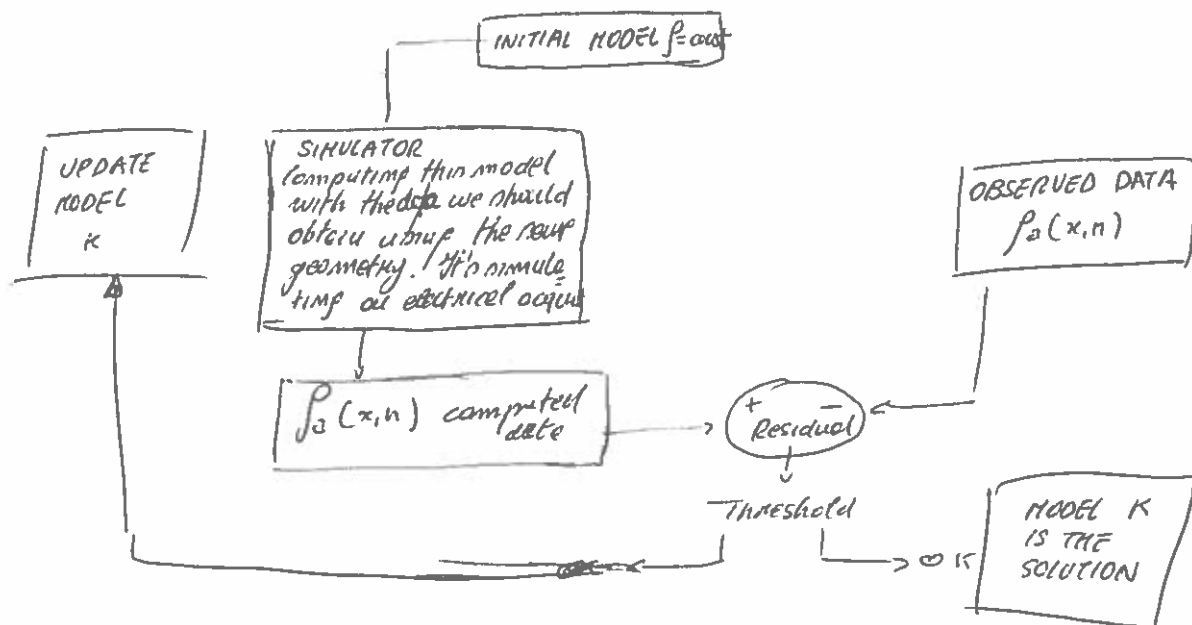 INITIAL MODEL ρ=cost
UPDATE
MODEL
K
SIMULATOR
Computing this model
with the data we should
obtain using the same
geometry. It's simula
ting an electrical acquis
OBSERVED DATA
ρa(x,n)
ρa(x,n) computed
data
+ -
Residual
Threshold
OK
MODEL K
IS THE
SOLUTION